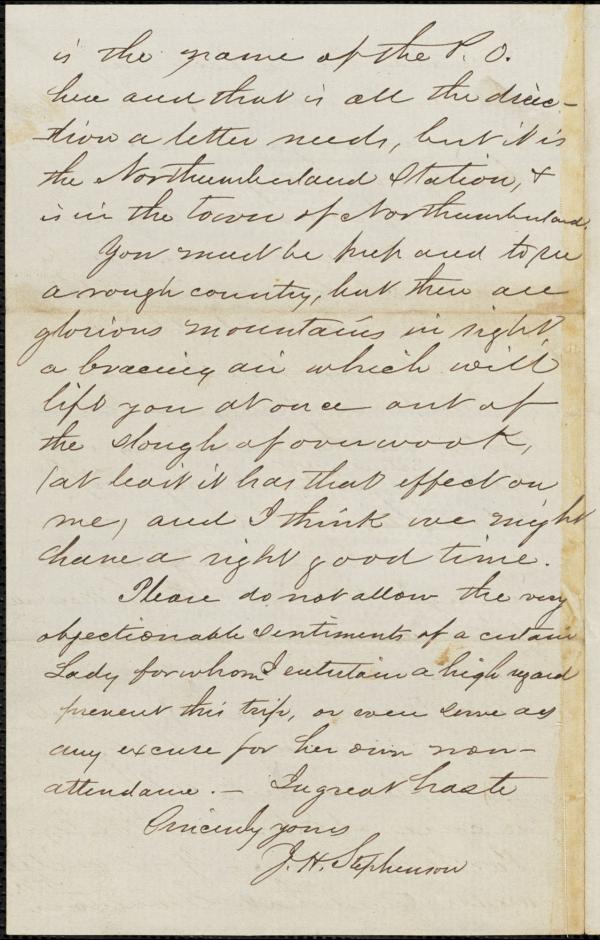 is the name of the P. O.
here and that is all the direc-
tion a letter needs, but it is
the Northumberland Station, &
is in the town of Northumberland.
You must be prepared to see
a rough country, but there are
glorious mountains in sight,
a bracing air which will
lift you at once out of
the slough of overwork,
(at least it has that effect on
me) and I think we might
have a right good time.
Please do not allow the very
objectionable sentiments of a certain
Lady for whom I entertain a high regard
prevent this trip, or even serve as
any excuse for her own non-
attendance. — In great haste
Sincerely yours
J. H. Stephenson